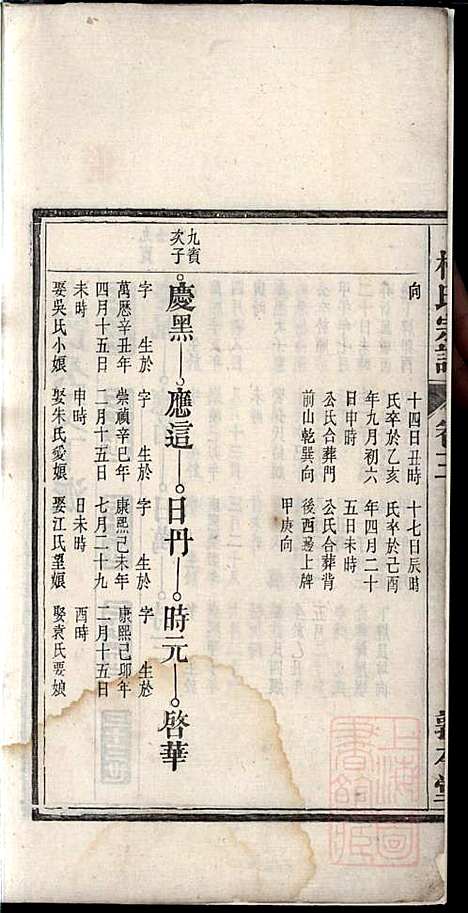 氏宗譜
卷三
敦本堂
向
十四日丑時
氏卒於乙亥
年九月初六
日申時
公氏合葬門
前山乾巽向
十七日辰時
氏卒於己酉
年四月二十
五日未時
公氏合葬背
後西邊上牌
甲庚向
九賓
次子
慶黑
字 生於
萬厯辛丑年
四月十五日
未時
娶吳氏小娘
應這
字 生於
崇禎辛巳年
二月十五日
申時
娶朱氏愛娘
日丹
字 生於
康熙己未年
七月二十九
日未時
娶江氏望娘
時元
字 生於
康熙己卯年
二月十五日
酉時
娶袁氏要娘
啓華
上海圖
書館藏